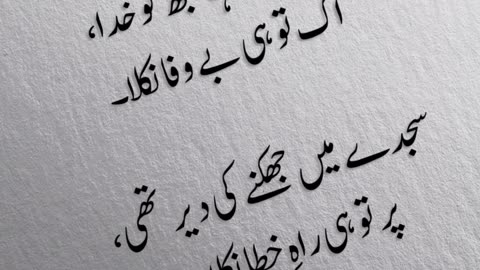 خدا،
اک تو ہی بے وفا نکلا۔
سجدے میں جھکنے کی دیر تھی،
پر تو ہی راہِ خطا